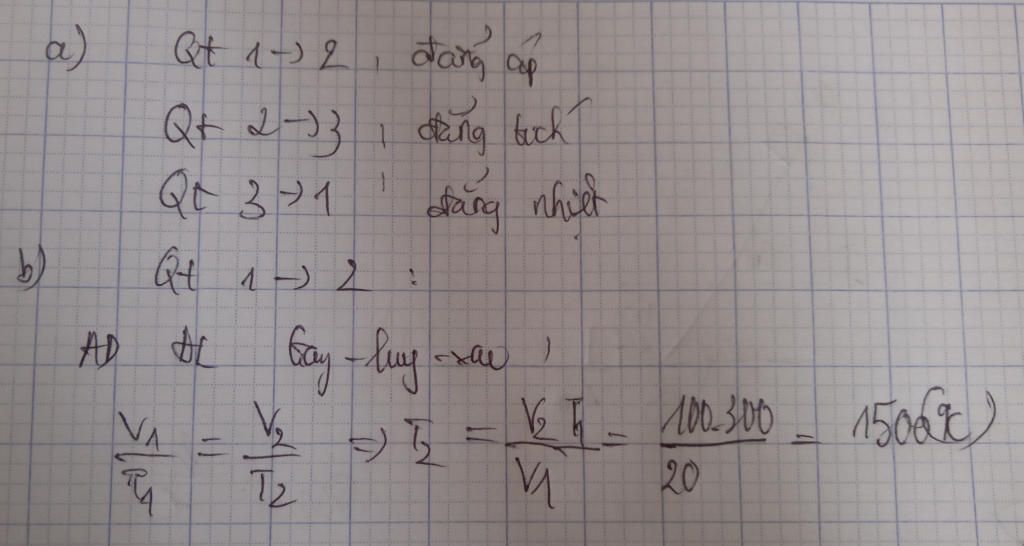 a) Qt 1 → 2 , đẳng áp
Qt 2 → 3 , đẳng tích
Qt 3 → 1 , đẳng nhiệt
b) Qt 1 → 2 :
AD ĐL Gay - luy - xac ,
V1/T1 = V2/T2 => T2 = V2 T1/V1 = 100.300/20 = 1500(K)